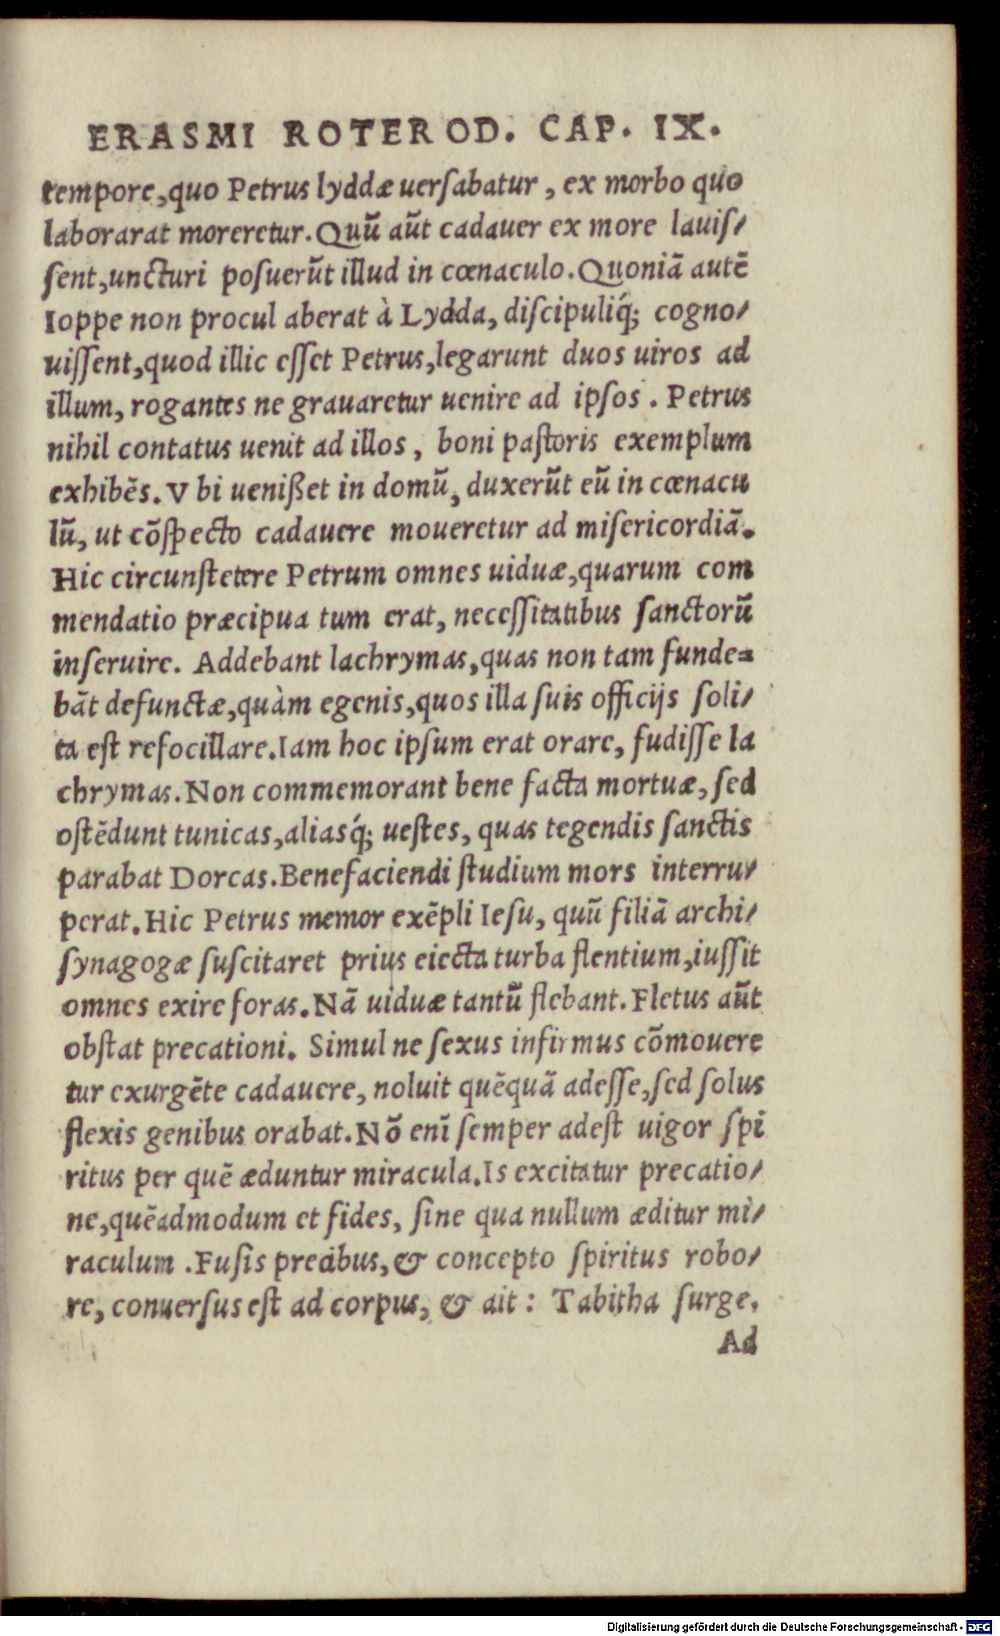 ERASMI ROTEROD. CAP. IX.
tempore,quo Petrus lyddæ uerſabatur , ex morbo quo
laborarat moreretur.Quũ aũt cadauer ex more lauiſ/
ſent,uncturi poſuerũt illud in cœnaculo.Quoniã autẽ
Ioppe non procul aberat à Lydda, diſcipuliq́; cogno/
uiſſent,quod illic eſſet Petrus,legarunt duos uiros ad
illum, rogantes ne grauaretur uenire ad ipſos . Petrus
nihil contatus uenit ad illos , boni paſtoris exemplum
exhibẽs. V bi uenißet in domũ, duxerũt eũ in cœnacu
lũ, ut cõſpecto cadauere moueretur ad miſericordiã.
Hic circunſtetere Petrum omnes uiduæ,quarum com
mendatio præcipua tum erat, neceſſitatibus ſanctorũ
inſeruire. Addebant lachrymas,quas non tam funde=
bãt defunctæ,quàm egenis,quos illa ſuis officijs ſoli/
ta eſt refocillare.Iam hoc ipſum erat orare, fudiſſe la
chrymas.Non commemorant bene facta mortuæ, ſed
oſtẽdunt tunicas,aliasq́; ueſtes, quas tegendis ſanctis
parabat Dorcas.Benefaciendi ſtudium mors interru/
perat. Hic Petrus memor exẽpli Ieſu, quũ filiã archi/
ſynagogæ ſuſcitaret prius eiecta turba flentium,iuſſit
omnes exire foras.Nã uiduæ tantũ flebant.Fletus aũt
obſtat precationi. Simul ne ſexus infirmus cõmouere
tur exurgẽte cadauere, noluit quẽquã adeſſe,ſed ſolus
flexis genibus orabat.Nõ enĩ ſemper adeſt uigor ſpi
ritus per quẽ æduntur miracula.Is excitatur precatio/
ne,quẽadmodum et fides, ſine qua nullum æditur mi/
raculum .Fuſis precibus,& concepto ſpiritus robo/
re, conuerſus eſt ad corpus, & ait : Tabitha ſurge.
Ad
Digitalisierung gefördert durch die Deutsche Forschungsgemeinschaft - DFG